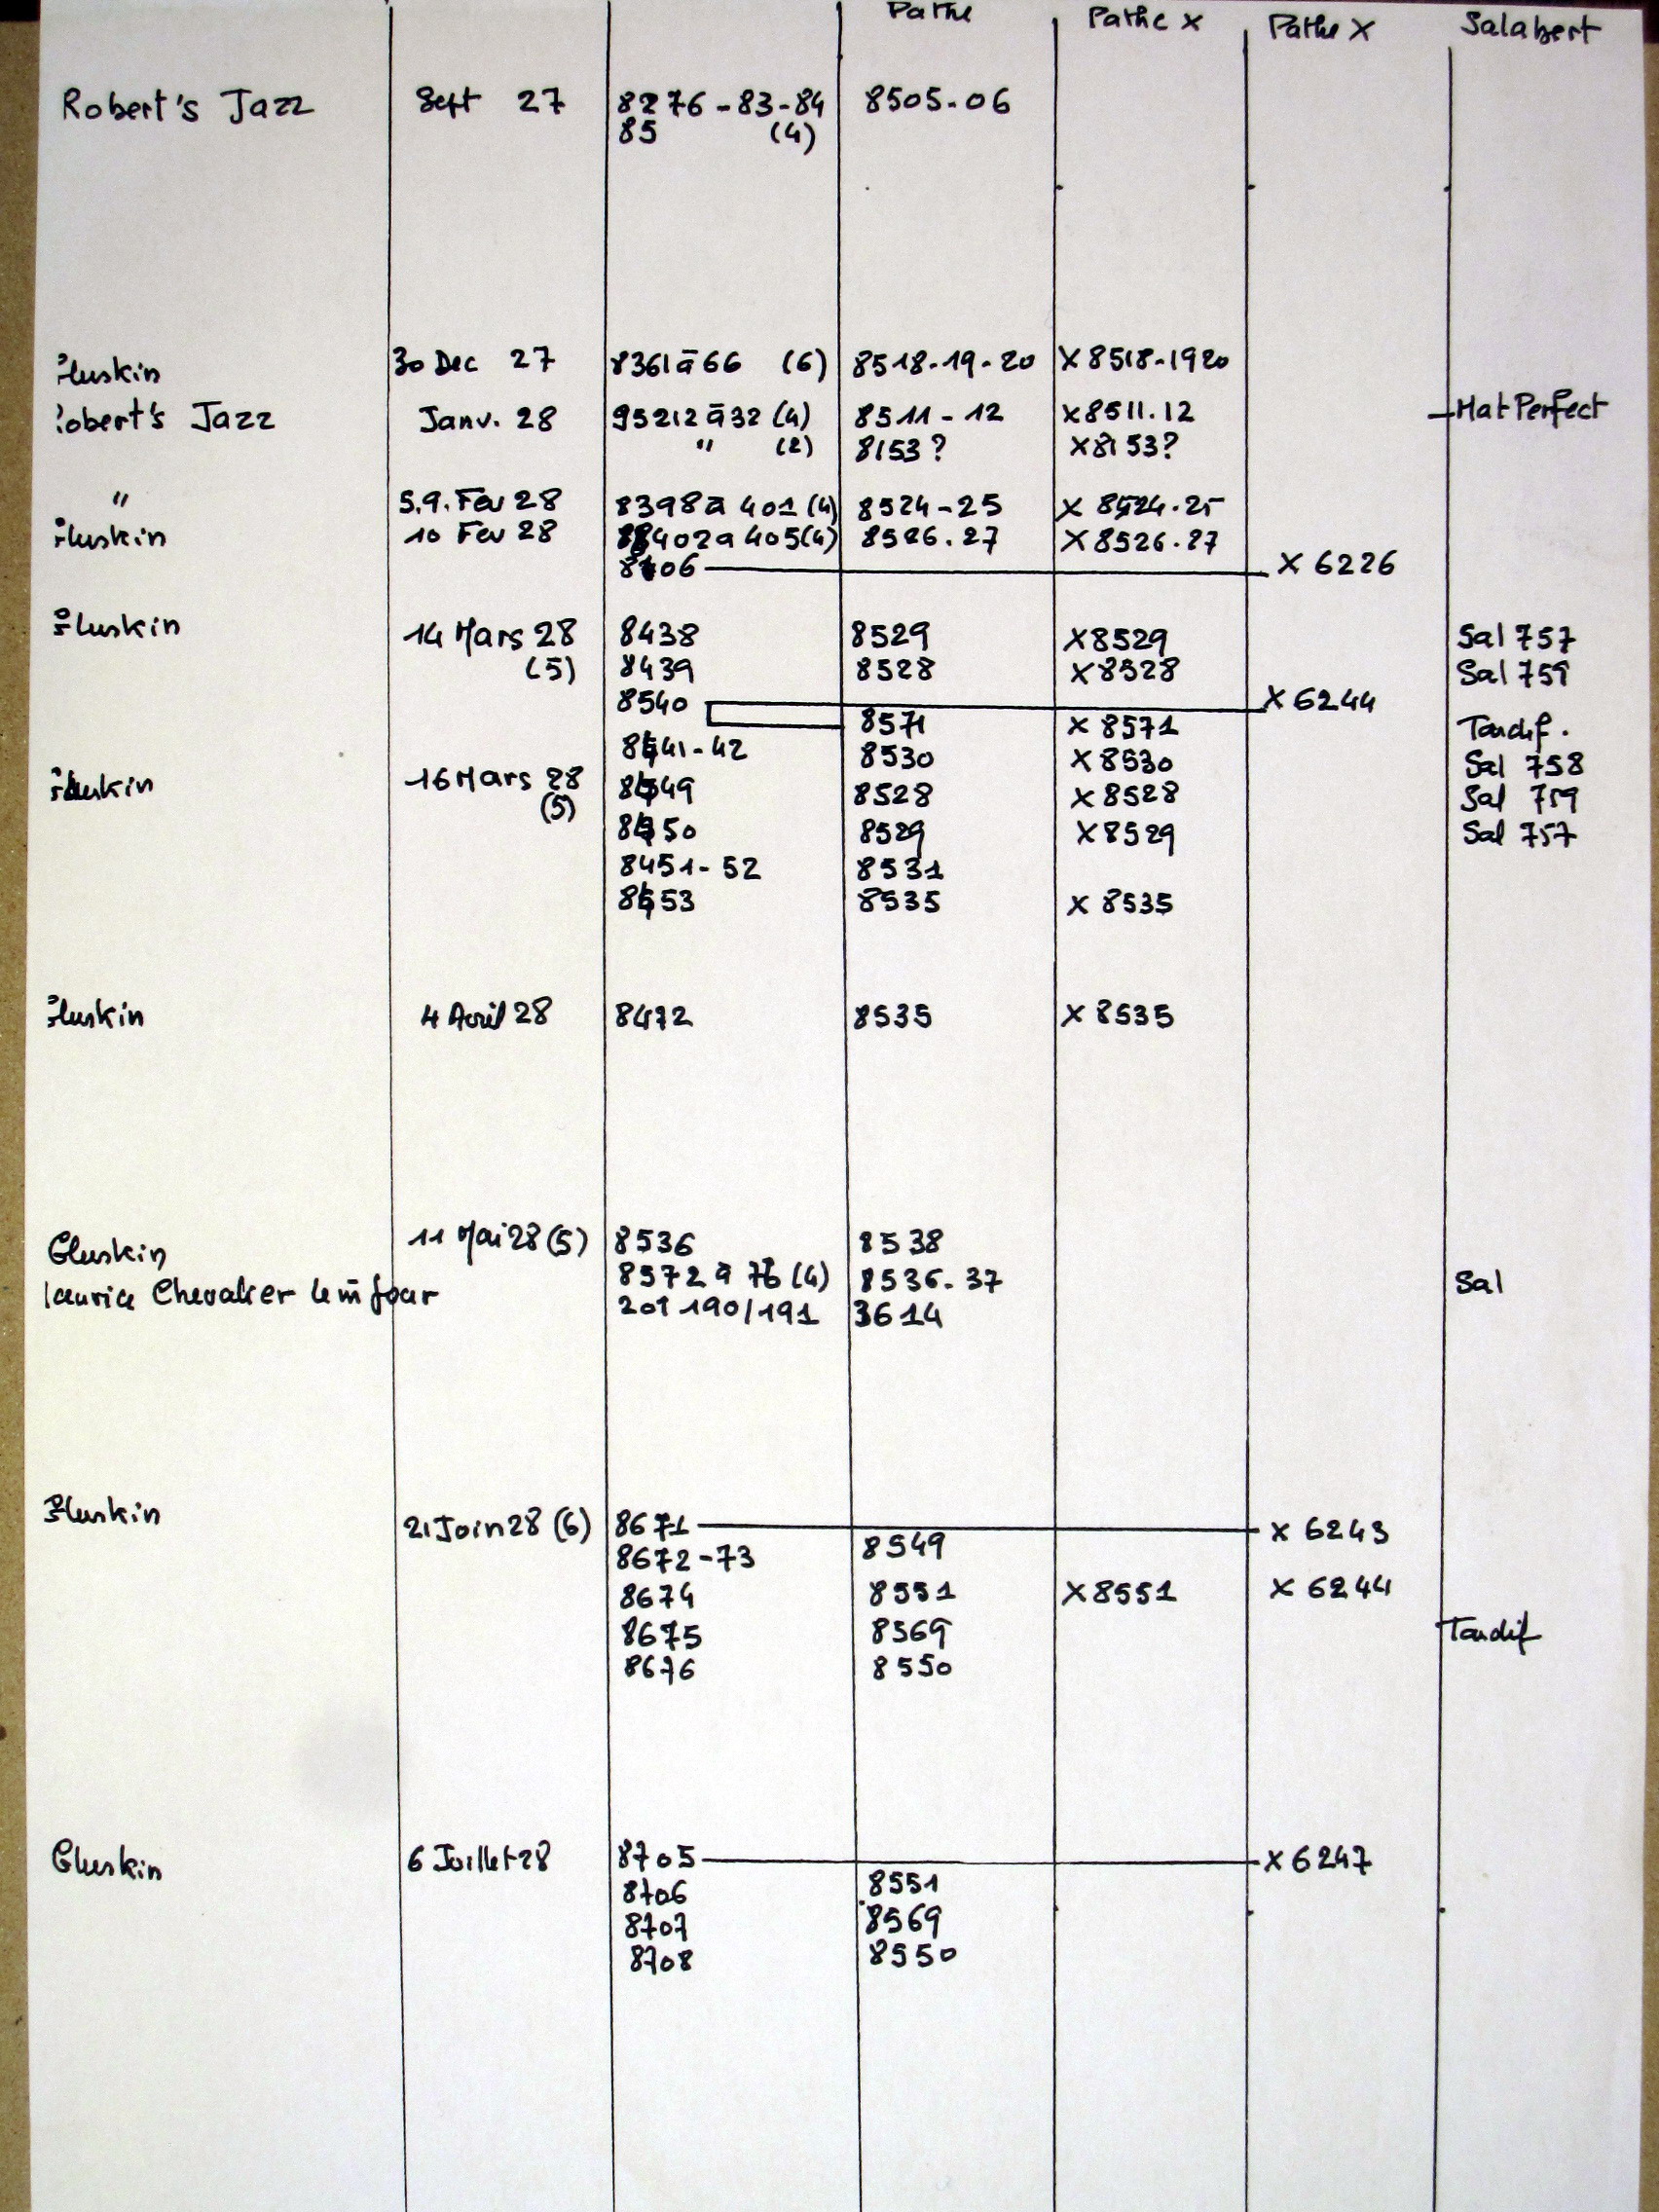 Pathe Pathe X Pathe X Salabert
Robert's Jazz Sept 27 8276-83-84 8505-06
85 (4)
Gluskin 30 Dec 27 8361 à 66 (6) 8518-19-20 X 8518-1920
Robert's Jazz Janv. 28 95212 à 32 (4) 8511-12 X 8511.12 Mat Perfect
" (2) 8153? X 8153?
" 5.9. Fev 28 8398 à 401 (4) 8524-25 X 8524.25
Gluskin 10 Fev 28 8402 a 405 (4) 8526.27 X 8526.27
8406 X 6226
Gluskin 14 Mars 28 8438 8529 X 8529 Sal 757
(5) 8439 8528 X 8528 Sal 759
8540 X 6244
8571 X 8571 Tardif.
8441-42 8530 X 8530 Sal 758
Gluskin 16 Mars 28 8449 8528 X 8528 Sal 759
(5) 8450 8529 X 8529 Sal 757
8451-52 8531
8453 8535 X 8535
Gluskin 4 Avril 28 8472 8535 X 8535
Gluskin 11 Mai 28 (5) 8536 8538
8572 à 76 (4) 8536.37 Sal
Maurice Chevalier le m̄ jour 201 190/191 3614
Gluskin 21 Juin 28 (6) 8671 X 6243
8672-73 8549
8674 8551 X 8551 X 6244
8675 8569 Tardif
8676 8550
Gluskin 6 Juillet 28 8705 X 6247
8706 8551
8707 8569
8708 8550